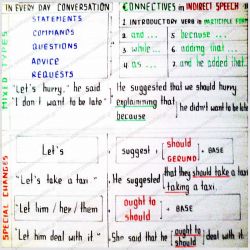 IN EVERY DAY CONVERSATION
CONNECTIVES in INDIRECT SPEECH
MIXED TYPES
STATEMENTS
COMMANDS
QUESTIONS
ADVICE
REQUESTS
1. INTRODUCTORY VERB in PARTICIPLE FORM
2. and ...
5. because ...
3. while...
6. adding that ...
4. as ...
7. and he added that.
"Let's hurry," he said
"I don't want to be late"
He suggested that we should hurry
explaining that
because
he didn't want to be late
SPECIAL CHANGES
Let's
suggest
should
GERUND
+ BASE
"Let's take a taxi"
He suggested
that they should take a taxi
taking a taxi.
Let him / her / them
ought to
should
+ BASE
"Let him deal with it"
She said that he
ought to
should
deal with it